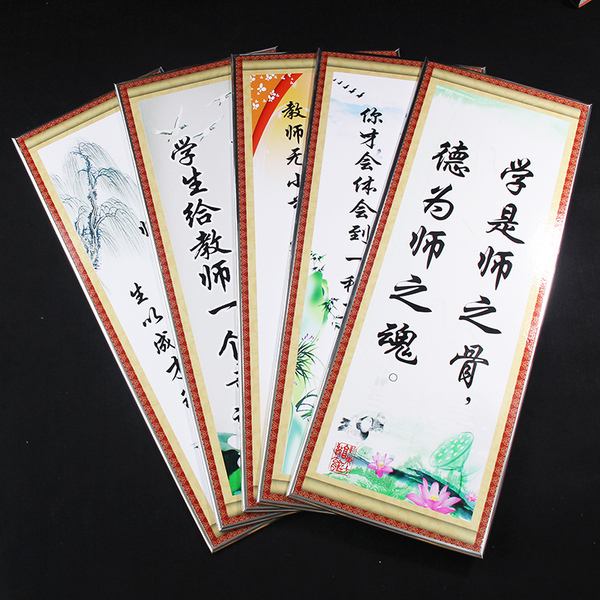 学是师之骨，
德为师之魂。
你才会体会到一种
教师无小
学生给教师一个
生以成才